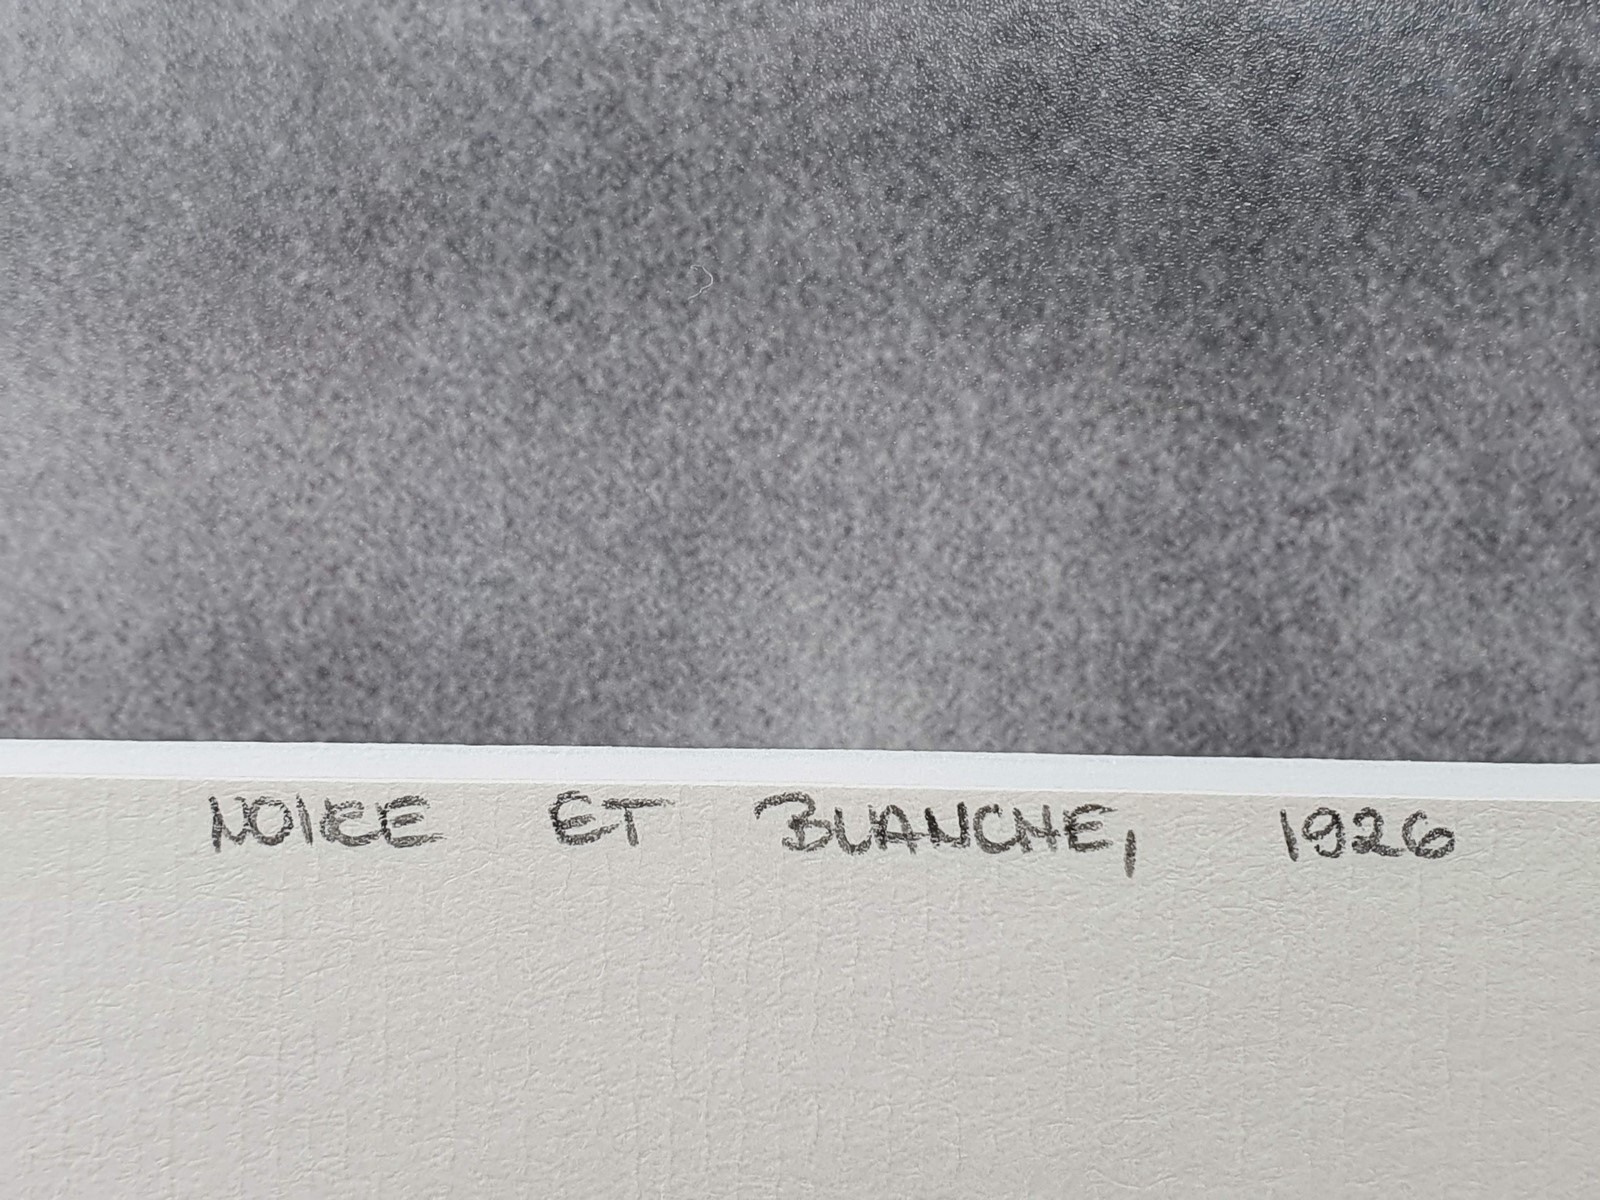 NOIRE ET BLANCHE, 1926